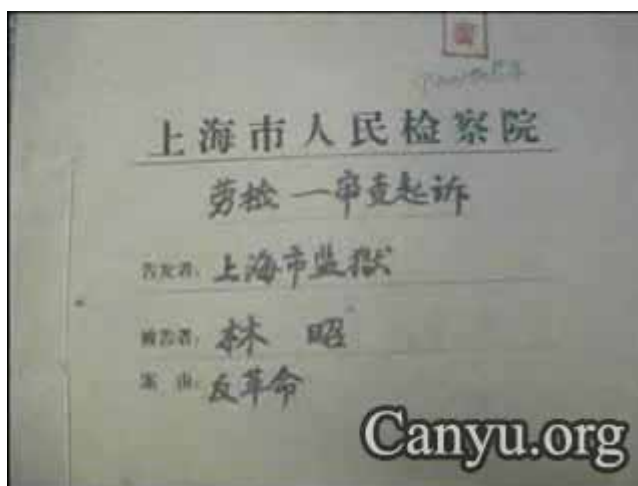 上海市人民检察院
劳检一审查起诉
告发者：上海市监狱
被告者：林 昭
案 由：反革命
Canyu.org